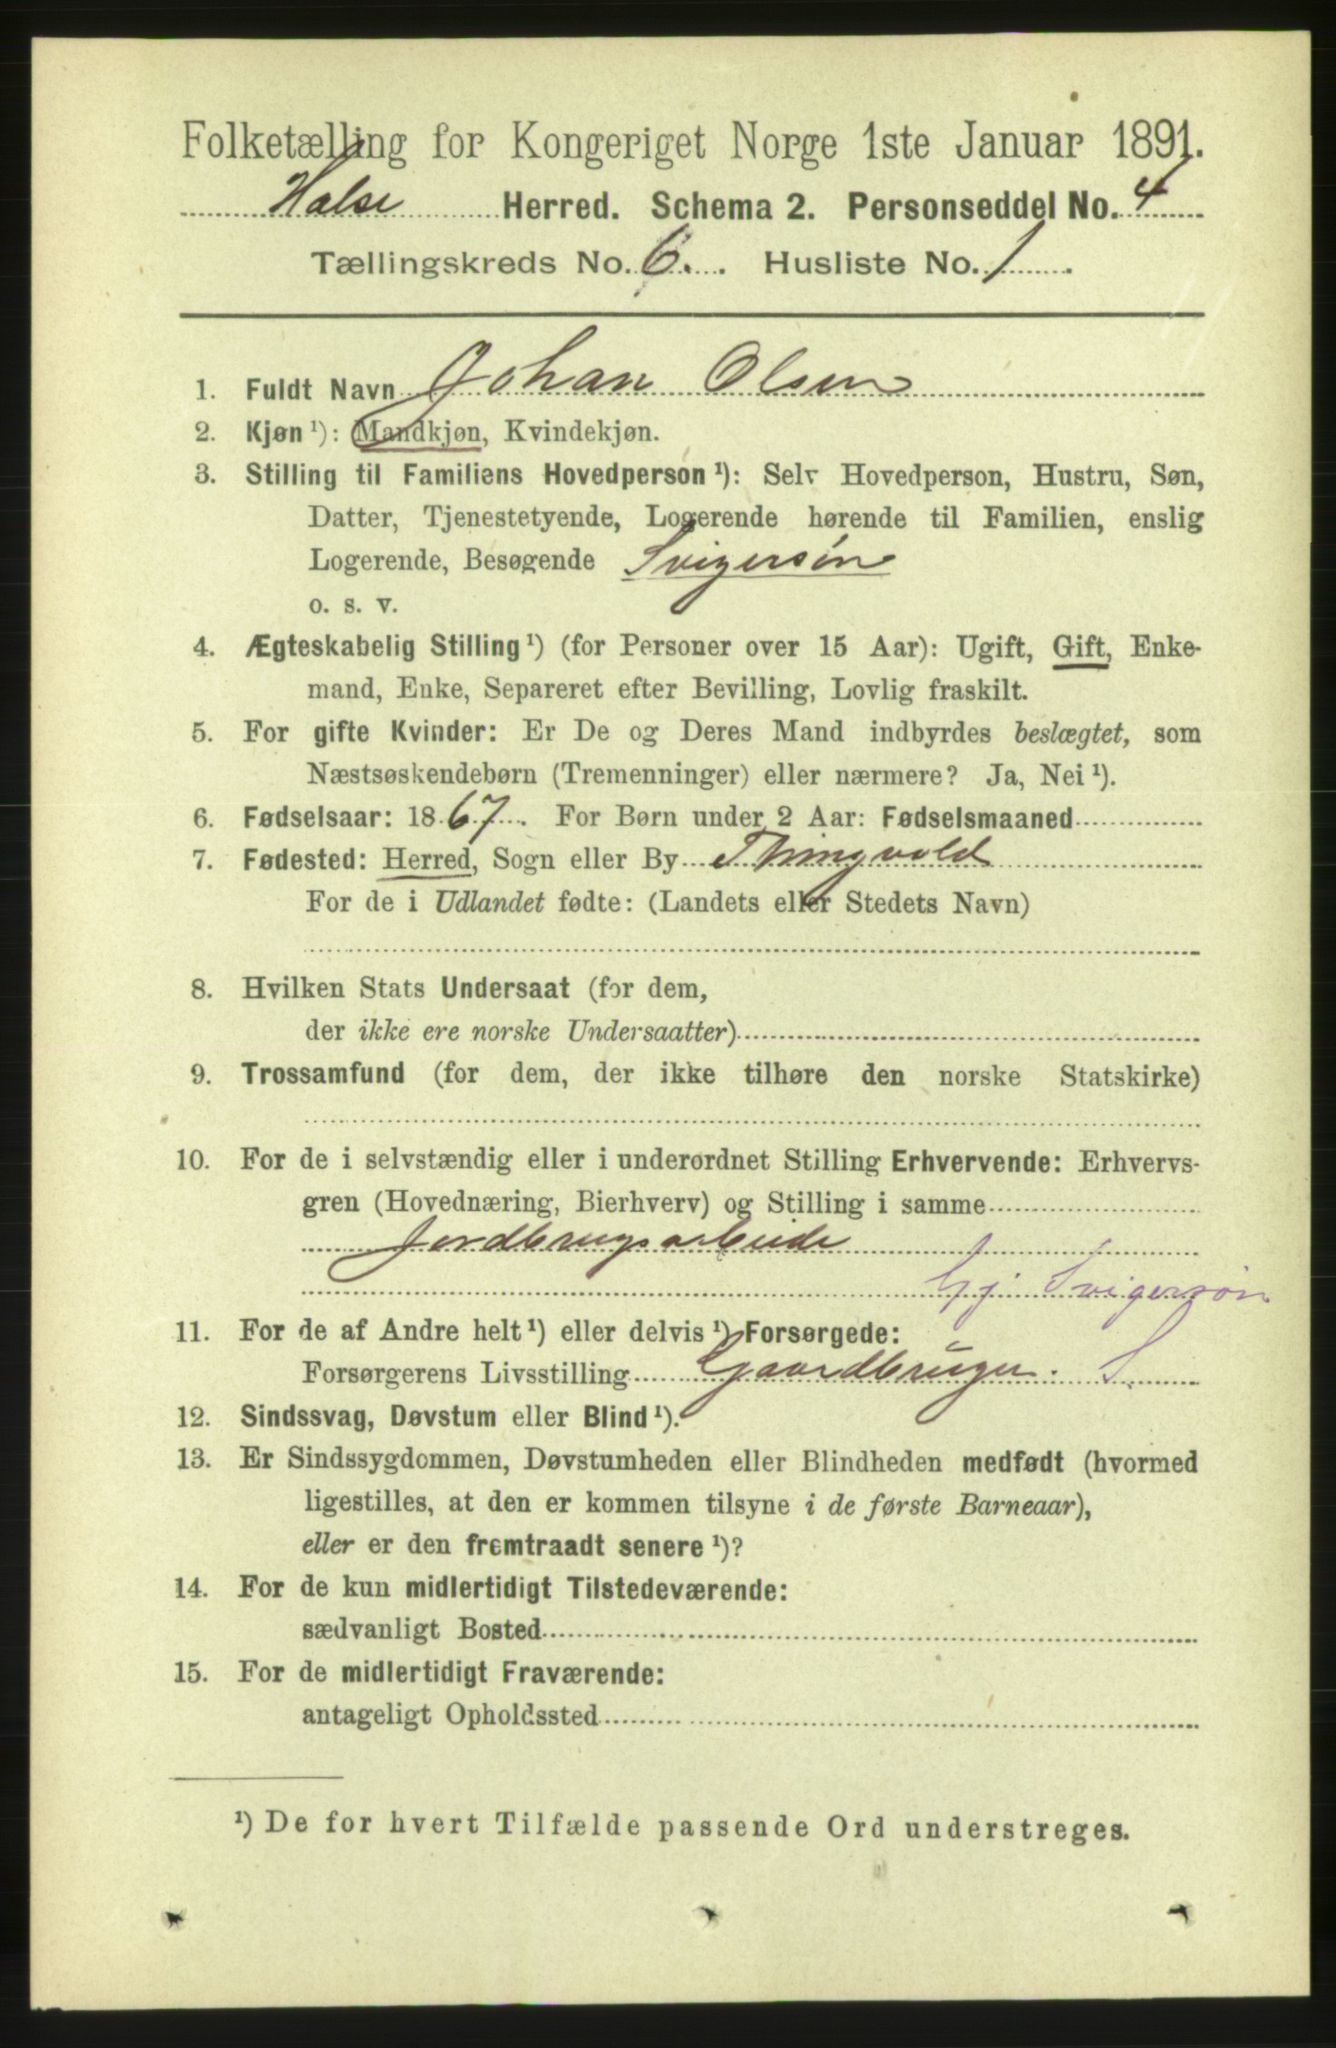 Folketælling for Kongeriget Norge 1ste Januar 1891.
Halse Herred. Schema 2. Personseddel No. 4
Tællingskreds No. 6. Husliste No. 1
1. Fuldt Navn Johan Olsen
2. Kjøn ¹): Mandkjøn, Kvindekjøn.
3. Stilling til Familiens Hovedperson ¹): Selv Hovedperson, Hustru, Søn,
Datter, Tjenestetyende, Logerende hørende til Familien, enslig
Logerende, Besøgende Svigersøn
o. s. v.
4. Ægteskabelig Stilling ¹) (for Personer over 15 Aar): Ugift, Gift, Enke-
mand, Enke, Separeret efter Bevilling, Lovlig fraskilt.
5. For gifte Kvinder: Er De og Deres Mand indbyrdes beslægtet, som
Næstsøskendebørn (Tremenninger) eller nærmere? Ja, Nei ¹).
6. Fødselsaar: 1867. For Børn under 2 Aar: Fødselsmaaned
7. Fødested: Herred, Sogn eller By Thingvold
For de i Udlandet fødte: (Landets eller Stedets Navn)
8. Hvilken Stats Undersaat (for dem,
der ikke ere norske Undersaatter)
9. Trossamfund (for dem, der ikke tilhøre den norske Statskirke)
10. For de i selvstændig eller i underordnet Stilling Erhvervende: Erhvervs-
gren (Hovednæring, Bierhverv) og Stilling i samme
Jordbrugsarbeide
Gj. Svigersøn
11. For de af Andre helt ¹) eller delvis ¹) Forsørgede:
Forsørgerens Livsstilling Gaardbruger. S.
12. Sindssvag, Døvstum eller Blind ¹).
13. Er Sindssygdommen, Døvstumheden eller Blindheden medfødt (hvormed
ligestilles, at den er kommen tilsyne i de første Barneaar),
eller er den fremtraadt senere ¹)?
14. For de kun midlertidigt Tilstedeværende:
sædvanligt Bosted
15. For de midlertidigt Fraværende:
antageligt Opholdssted
¹) De for hvert Tilfælde passende Ord understreges.